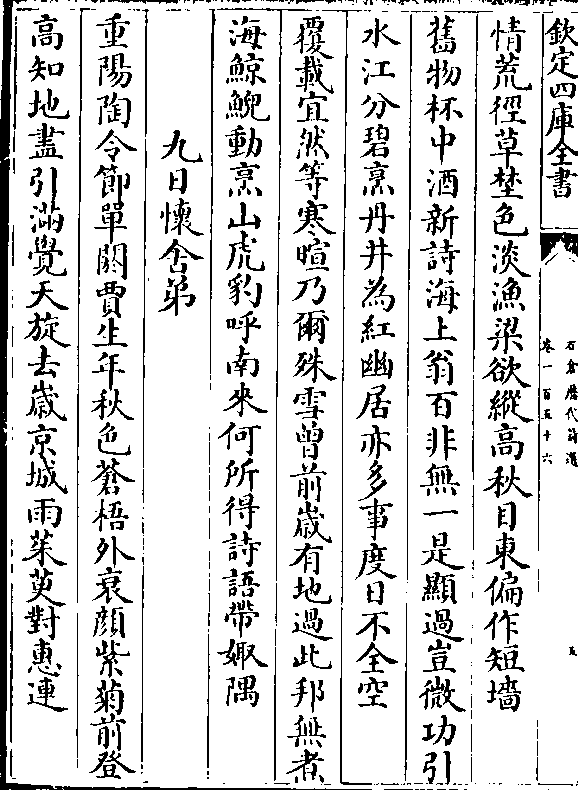 欽定四庫全書
石倉歷代詩選
卷一百五十六
五
情荒徑草埜色淡漁梁欲縱高秋目東偏作短墻
舊物杯中酒新詩海上翁百非無一是顯過豈微功引
水江分碧烹丹井為紅幽居亦多事度日不全空
覆載宜然等寒暄乃爾殊雪曽前嵗有地過此邦無煮
海鯨鯢動烹山虎豹呼南來何所得詩語帶娵隅
九日懷舍弟
重陽陶令節單閼賈生年秋色蒼梧外衰顔紫菊前登
高知地盡引滿覺天旋去嵗京城雨茱萸對惠連